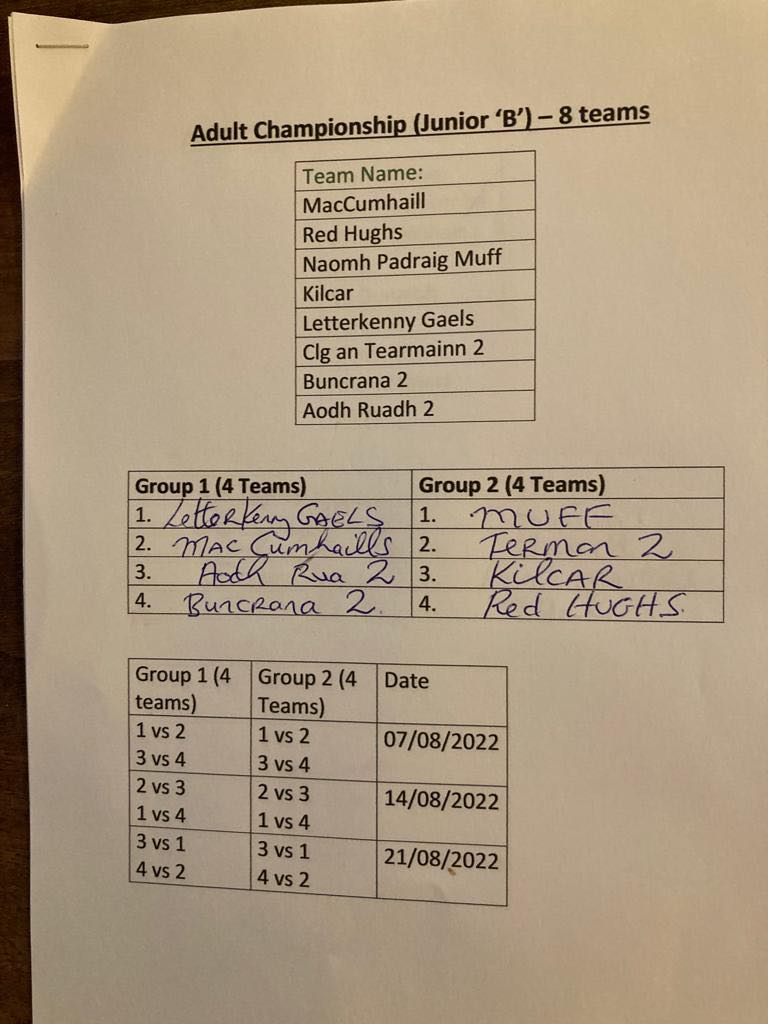 Adult Championship (Junior ‘B’) – 8 teams
Team Name:
MacCumhaill
Red Hughs
Naomh Padraig Muff
Kilcar
Letterkenny Gaels
Clg an Tearmainn 2
Buncrana 2
Aodh Ruadh 2
Group 1 (4 Teams) Group 2 (4 Teams)
1. Letterkenny GAELS 1. MUFF
2. MAC Cumhaills 2. Termon 2
3. Aodh Rua 2 3. KilCAR
4. Buncrana 2. 4. Red HUGHS.
Group 1 (4 Group 2 (4 Date
teams) Teams)
1 vs 2 1 vs 2 07/08/2022
3 vs 4 3 vs 4
2 vs 3 2 vs 3 14/08/2022
1 vs 4 1 vs 4
3 vs 1 3 vs 1 21/08/2022
4 vs 2 4 vs 2